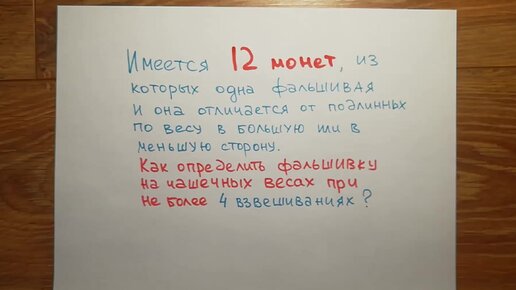 Имеется 12 монет, из
которых одна фальшивая
и она отличается от подлинных
по весу в большую или в
меньшую сторону.
Как определить фальшивку
на чашечных весах при
не более 4 взвешиваниях?